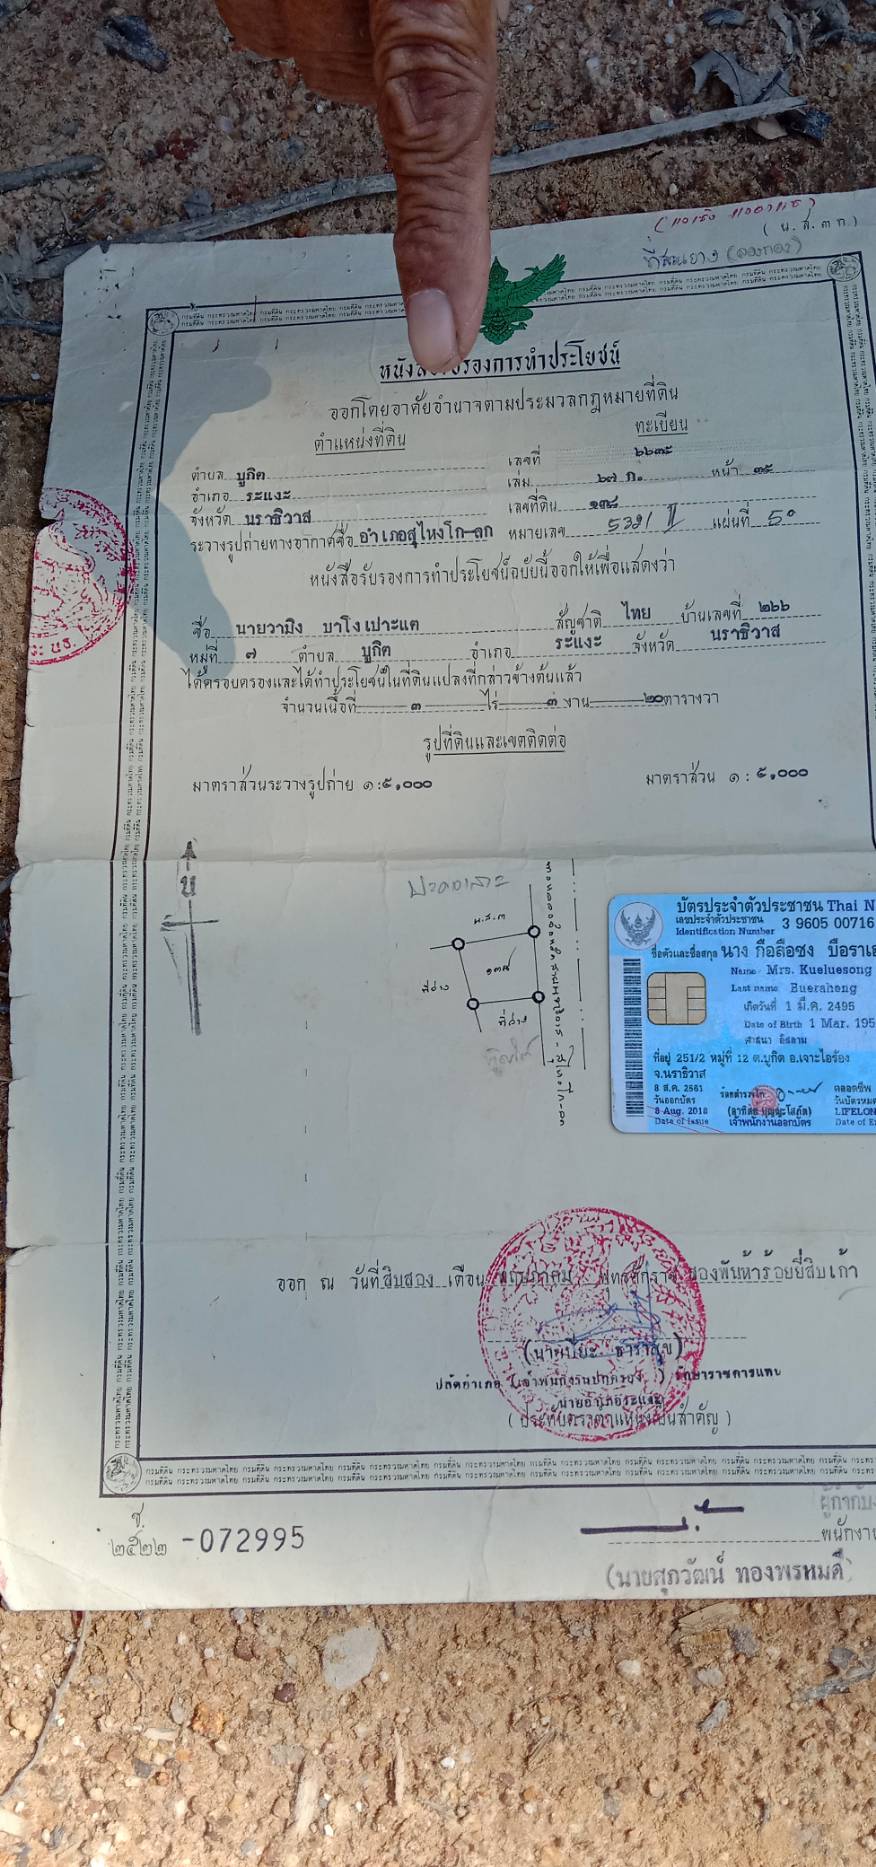 (น.ส.๓ ก.)
ที่สวนยาง (ลองกอง)
หนังสือรับรองการทำประโยชน์
ออกโดยอาศัยอำนาจตามประมวลกฎหมายที่ดิน
ตำแหน่งที่ดิน ทะเบียน
ตำบล บูกิต เลขที่ ๖๖๓๕
อำเภอ ระแงะ เล่ม ๖๗ ก. หน้า ๓๕
จังหวัด นราธิวาส เลขที่ดิน ๑๓๘
ระวางรูปถ่ายทางอากาศชื่อ อำเภอสุไหงโก-ลก หมายเลข 5321 II แผ่นที่ 5๐
หนังสือรับรองการทำประโยชน์ฉบับนี้ออกให้เพื่อแสดงว่า
ชื่อ นายวามิง บาโงเปาะแต สัญชาติ ไทย บ้านเลขที่ ๒๖๖
หมู่ที่ ๗ ตำบล บูกิต อำเภอ ระแงะ จังหวัด นราธิวาส
ได้ครอบครองและได้ทำประโยชน์ในที่ดินแปลงที่กล่าวข้างต้นแล้ว
จำนวนเนื้อที่ ๓ ไร่ ๓ งาน ๒๐ ตารางวา
รูปที่ดินและเขตติดต่อ
มาตราส่วนระวางรูปถ่าย ๑:๕,๐๐๐ มาตราส่วน ๑ : ๕,๐๐๐
น
น.ส.๓
๑๓๘
ที่ว่าง
ที่ว่าง
บัตรประจำตัวประชาชน Thai N
เลขประจำตัวประชาชน 3 9605 00716
Identification Number
ชื่อตัวและชื่อสกุล นาง กือลือซง บือราเฮ
Name Mrs. Kueluesong
Last name Bueraheng
เกิดวันที่ 1 มี.ค. 2495
Date of Birth 1 Mar. 195
ศาสนา อิสลาม
ที่อยู่ 251/2 หมู่ที่ 12 ต.บูกิต อ.เจาะไอร้อง
จ.นราธิวาส
8 ส.ค. 2561 ตลอดชีพ
วันออกบัตร วันบัตรหมด
8 Aug. 2018 LIFELON
Date of Issue เจ้าพนักงานออกบัตร Date of E
ออก ณ วันที่สิบสอง เดือน พฤษภาคม พุทธศักราช สองพันห้าร้อยยี่สิบเก้า
(นายปิยะ ธาราสุข)
ปลัดอำเภอ (เจ้าพนักงานปกครอง ) รักษาราชการแทน
นายอำเภอระแงะ
( ประทับตราตำแหน่งเป็นสำคัญ )
ช.
๒๕๒๒ -072995
พนักงา
(นายสุภวัฒน์ ทองพรหมดี)